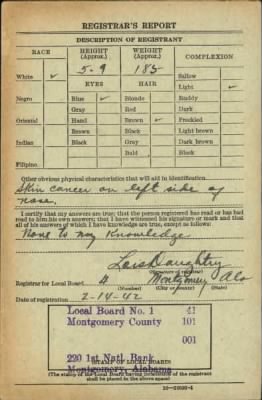 REGISTRAR'S REPORT
DESCRIPTION OF REGISTRANT
RACE HEIGHT (Approx.) WEIGHT (Approx.) COMPLEXION
5-9 185 Sallow
White ✓ EYES HAIR Light ✓
Ruddy
Negro Blue ✓ Blonde Dark
Gray Red Freckled
Oriental Hazel Brown ✓ Light brown
Brown Black Dark brown
Indian Black Gray Black
Bald
Filipino
Other obvious physical characteristics that will aid in identification
Skin cancer on left side of
nose.
I certify that my answers are true; that the person registered has read or has had
read to him his own answers; that I have witnessed his signature or mark and that
all of his answers of which I have knowledge are true, except as follows:
None to my knowledge
Daughtry
(Signature of registrar)
Registrar for Local Board 4 Montgomery Ala
(Number) (City or county) (State)
Date of registration 2-14-42
Local Board No. 1 41
Montgomery County 101
001
220 1st Natl. Bank
Montgomery, Alabama
(STAMP OF LOCAL BOARD)
(The stamp of the Local Board having jurisdiction of the registrant
shall be placed in the above space)